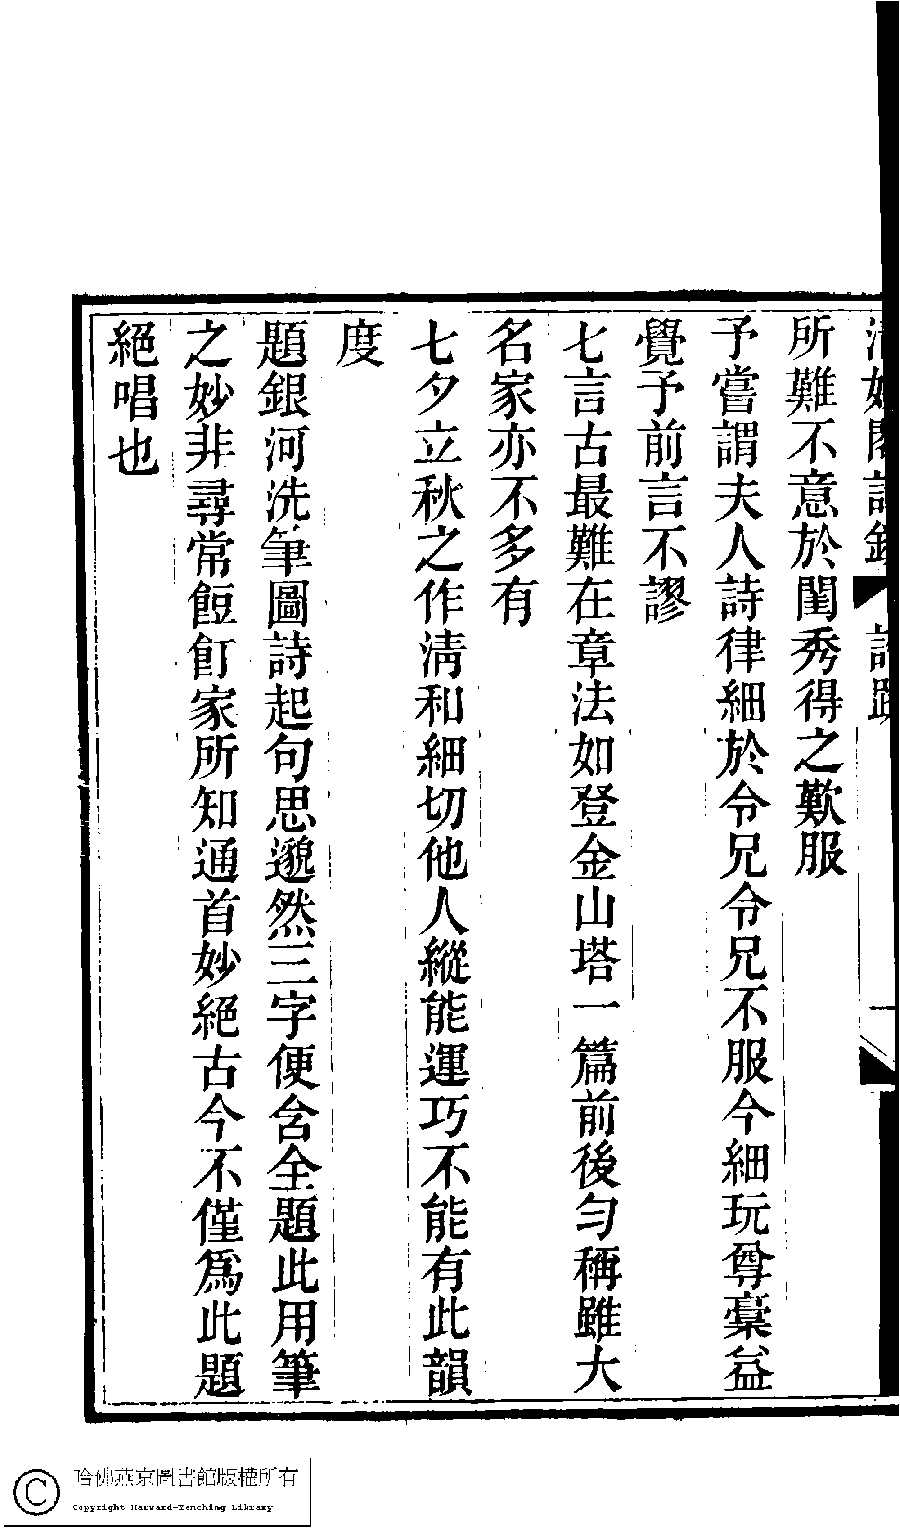 所難不意於閨秀得之歎服
予嘗謂夫人詩律細於令兄令兄不服今細玩尊稾益
覺予前言不謬
七言古最難在章法如登金山塔一篇前後勻稱雖大
名家亦不多有
七夕立秋之作淸和細切他人縱能運巧不能有此韻
度
題銀河洗筆圖詩起句思邈然三字便含全題此用筆
之妙非尋常餖飣家所知通首妙絕古今不僅爲此題
絕唱也
哈佛燕京圖書館版權所有
Copyright Harvard-Yenching Library